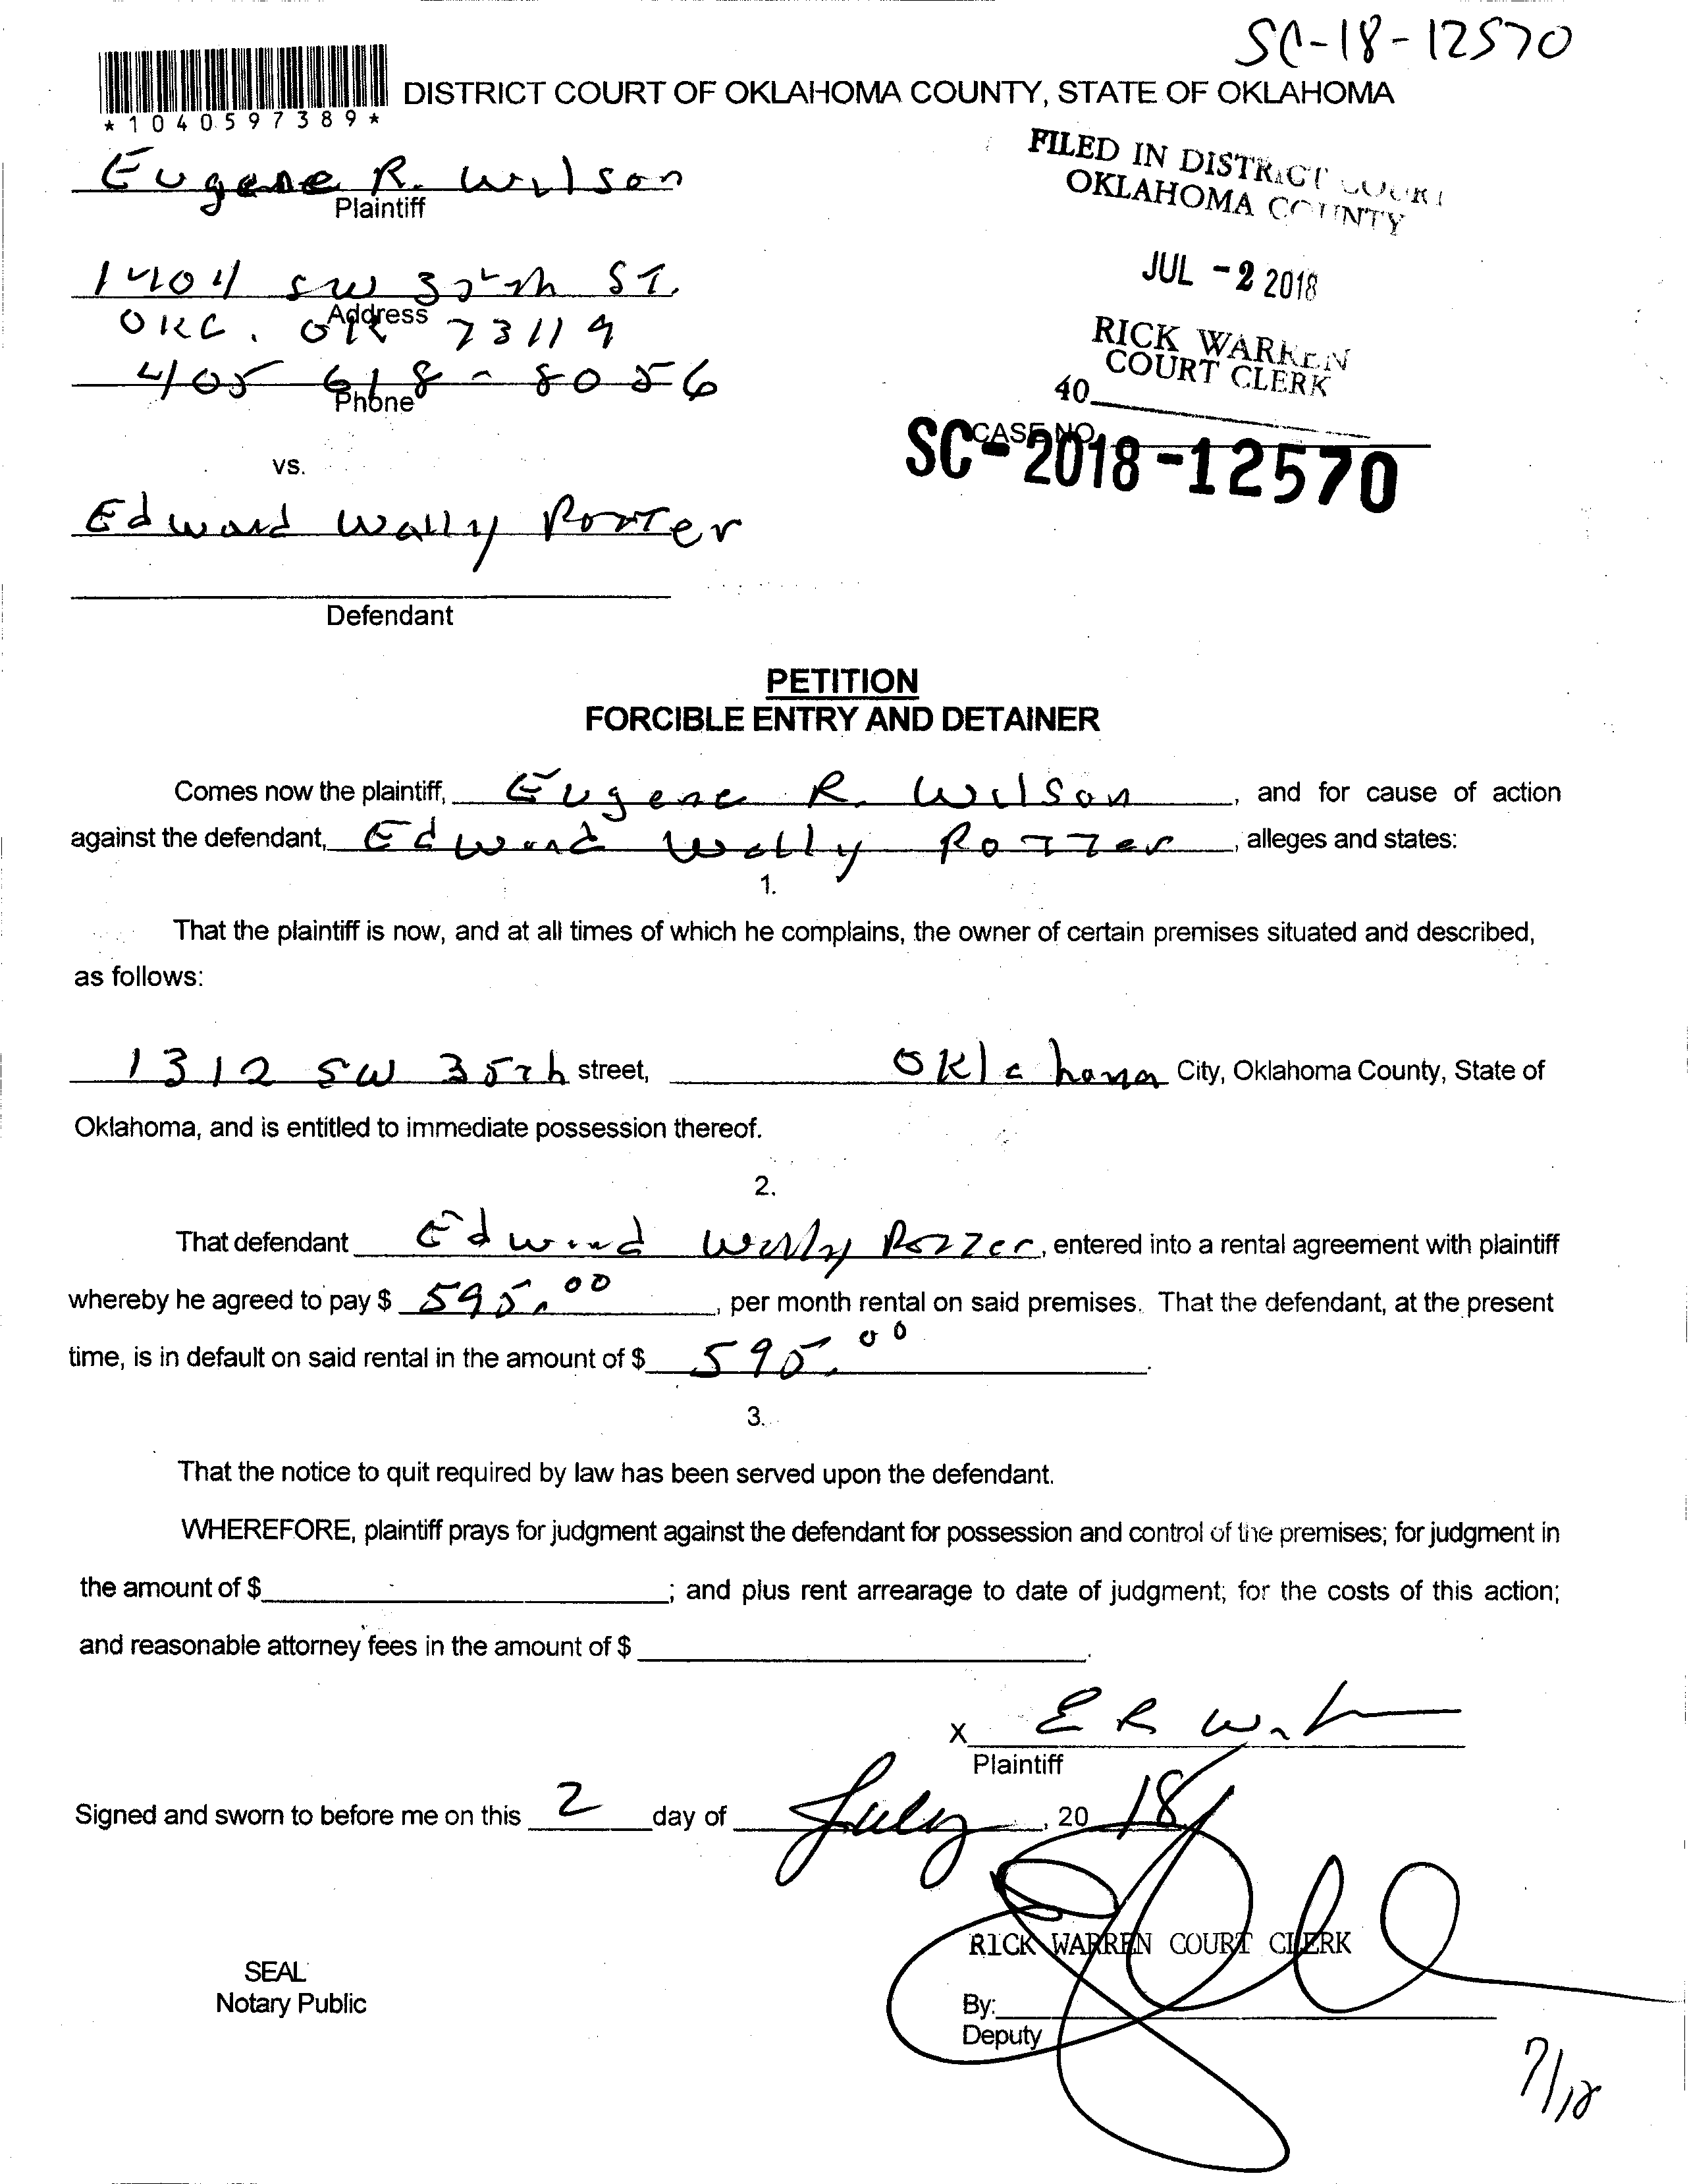 SC-18-12570
DISTRICT COURT OF OKLAHOMA COUNTY, STATE OF OKLAHOMA
*1040597389*
FILED IN DISTRICT COURT
OKLAHOMA COUNTY
Eugene R. Wilson
Plaintiff
JUL -2 2018
1404 SW 35th ST.
Address
OKC. OK 73119
RICK WARREN
COURT CLERK
405 618-8056
Phone
40
CASE NO.
SC-2018-12570
vs.
Edward Wally
Defendant
PETITION
FORCIBLE ENTRY AND DETAINER
Comes now the plaintiff, Eugene R. Wilson, and for cause of action
against the defendant, Edward Wally, alleges and states:
1.
That the plaintiff is now, and at all times of which he complains, the owner of certain premises situated and described,
as follows:
1312 SW 35th street, Oklahoma City, Oklahoma County, State of
Oklahoma, and is entitled to immediate possession thereof.
2.
That defendant Edward Wally, entered into a rental agreement with plaintiff
whereby he agreed to pay $ 595.00, per month rental on said premises. That the defendant, at the present
time, is in default on said rental in the amount of $ 595.00.
3.
That the notice to quit required by law has been served upon the defendant.
WHEREFORE, plaintiff prays for judgment against the defendant for possession and control of the premises; for judgment in
the amount of $ ; and plus rent arrearage to date of judgment; for the costs of this action;
and reasonable attorney fees in the amount of $ .
X E R
Plaintiff
Signed and sworn to before me on this 2 day of July, 20 18
RICK WARREN COURT CLERK
SEAL
Notary Public
By:
Deputy
7/18